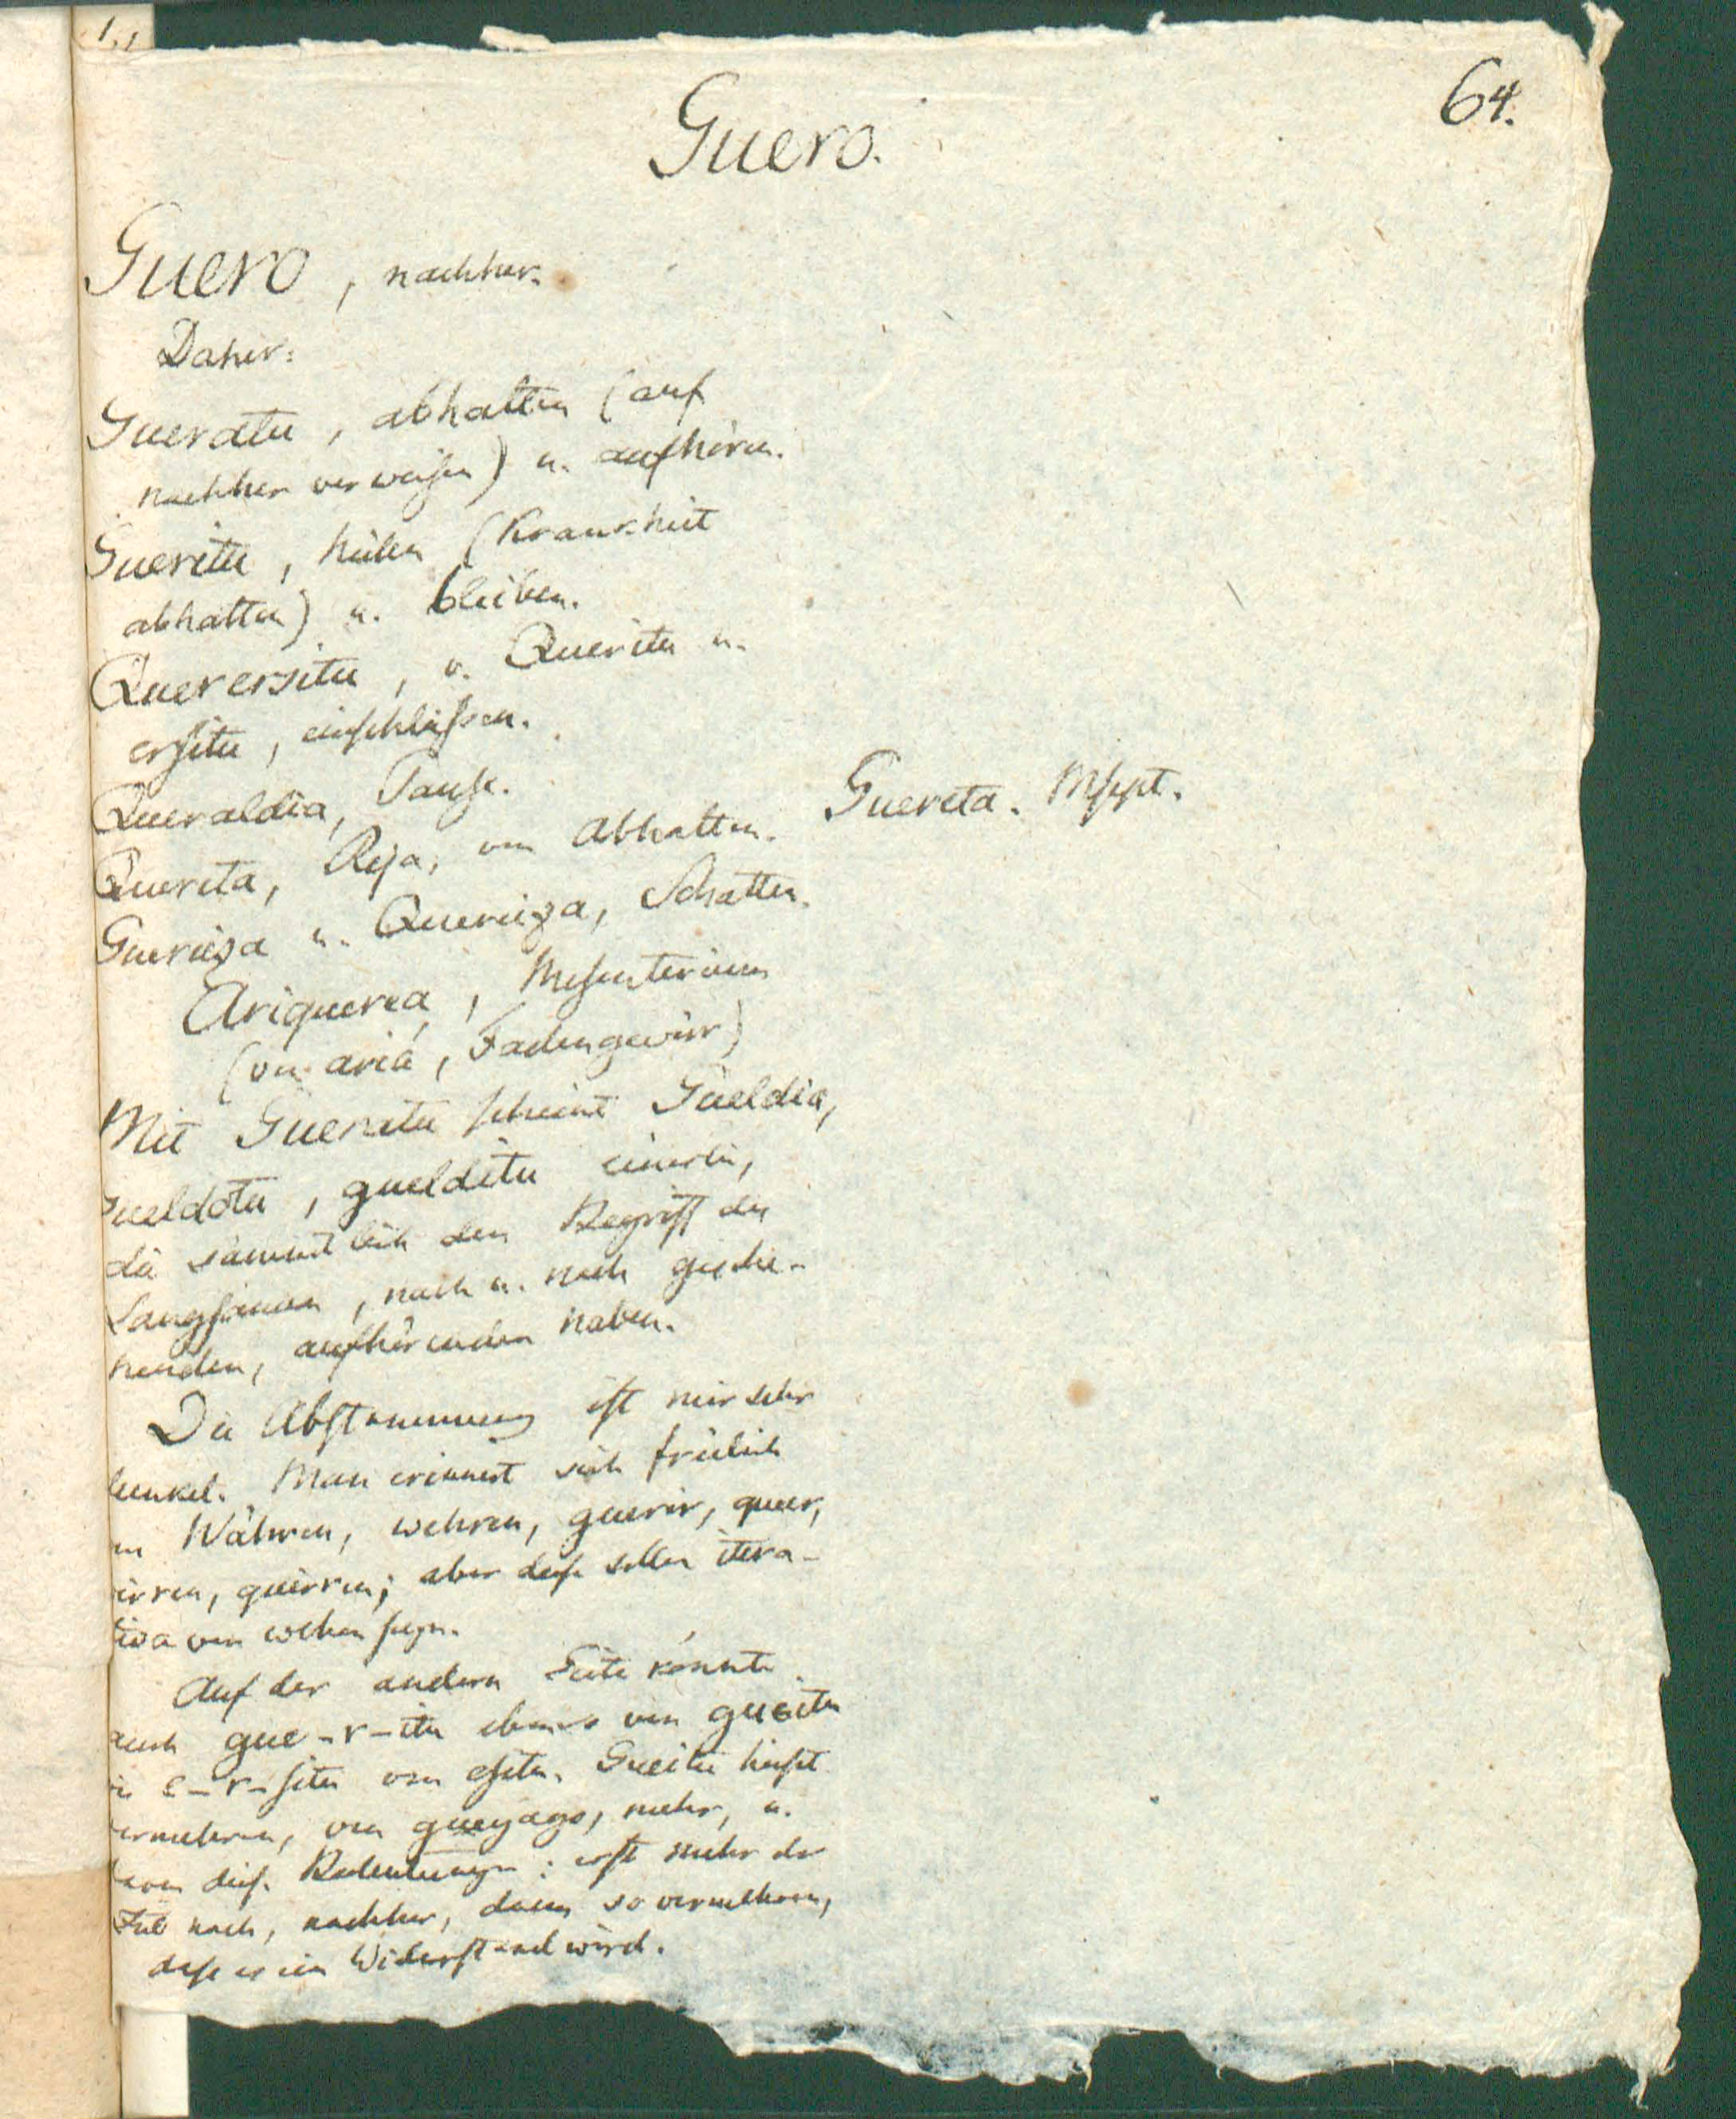 1,1
64.
Guero.
Guero, nachher.
Daher:
Gueratu, abhalten (auf
nachher verweisen) u. aufhören.
Gueritu, heilen (Krankheit
abhalten) u. bleiben.
Querersitu, v. Queritu u.
ersitu, einschliessen.
Queraldia, Pause.
Quereta, Reja, von abhalten. Guereta. Mspt.
Gueriza u. Queriza, Schatten.
Ariquerea, Mesenterium
(von aria, Fadengewirr)
Mit Gueratu scheint Gueldia,
ueldotu, guelditu einerlei,
die sämmtlich den Begriff des
Langsamen, nach u. nach gesche-
henden, aufhörenden haben.
Die Abstammung ist mir sehr
dunkel. Man erinnert sich freilich
an Währen, wehren, guerir, queer,
irren, quirren; aber diese sollen itera-
tiva von wehen seyn.
Auf der andern Seite könnte
auch gue-r-itu ebenso von gueitu
wie e-r-situ von esitu. Gueitu heisst
vermehren, von gueyago, mehr, u.
davon diese Bedeutungen: erst mehr der
Zeit nach, nachher, dann so vermehren,
dass es ein Widerstand wird.